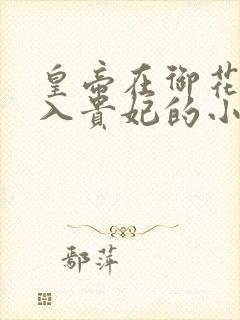 皇帝在御花
入贵妃的小
鄢萍